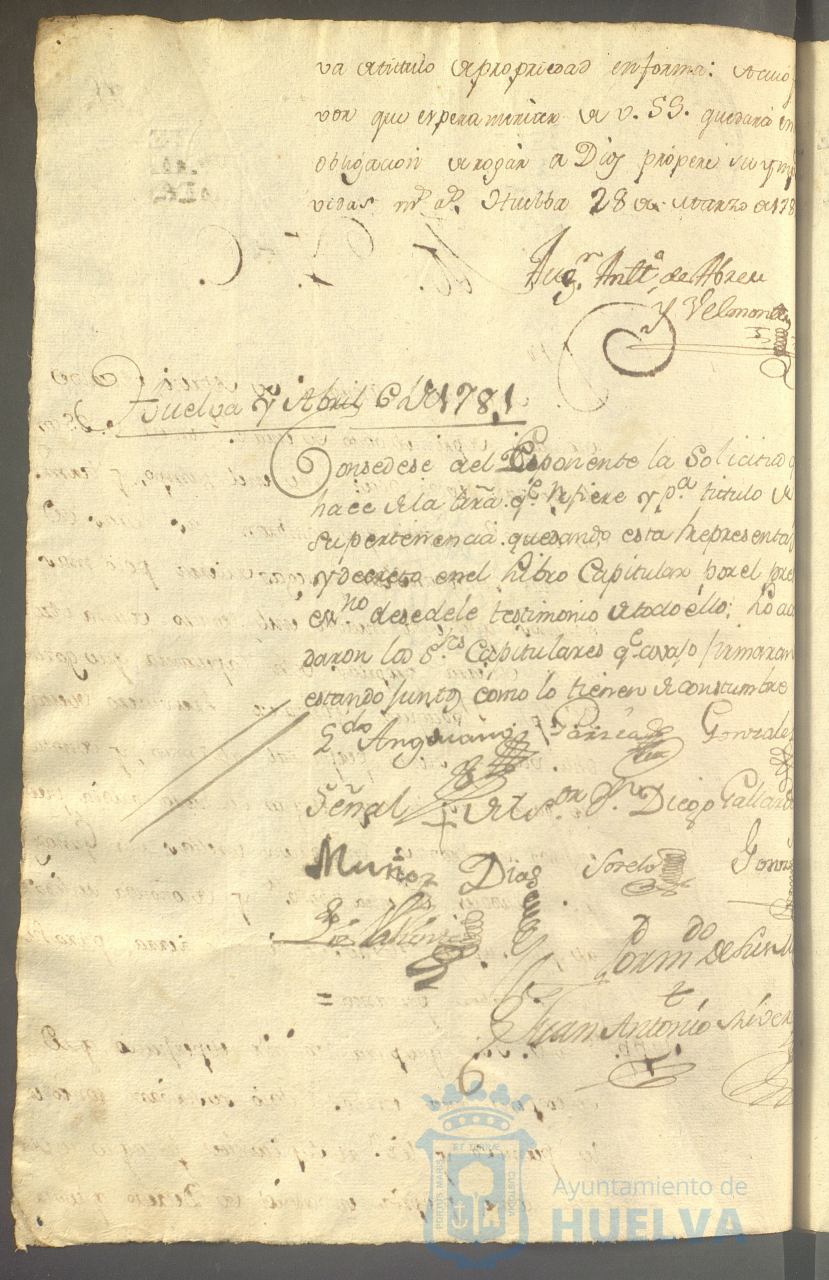 va el titulo de propriedad en forma: cuio
vor que espera merecer de V. SS. quedará en
obligacion de rogár a Dios prospere su
vidas ms. as. Huelba 28 de Marzo de 178
Agn. Antto. de Abreu
y Velmonte
Huelva y Abril 6 de 1781
Consedese al Esponente la Solicitud q
hace de la trã. qe. Refiere y pa. titulo de
su pertenencia quedando esta Representa
y decreto en el Libro Capitular por el pre
esno. desedele testimonio de todo éllo; Lo ac
daron los Sres. Capitulares qe. avajo firmaran
estando juntos como lo tienen de constumbre
Ldo. Anguiano Gonzales
Señal + del Sor. Dn. Diego Gallard
Muñoz Dias Sorelo Gonz
Por mdo. de Su
Juan Antonio
PORTUS MARIS ET TERRE CUSTODIA
Ayuntamiento de
HUELVA